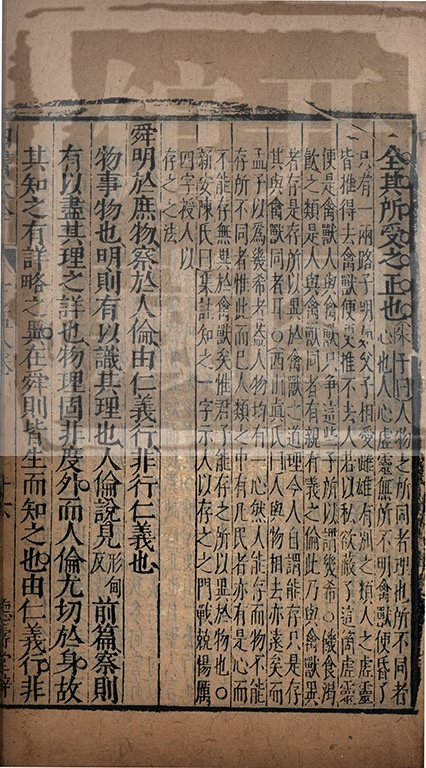 全其所受之正也朱子曰人物之所同者理也所不同者
心也人心虛靈無所不明禽獸便昏了
只有一兩路子明父子相愛雌雄有別之類人之虛靈
皆推得去禽獸便推不去人若以私欲蔽了這箇虛靈
便是禽獸人與禽獸只爭這些子所以謂幾希○饑食渴
飲之類是人與禽獸同者有親有義之倫此乃與禽獸異
者存是存所以異於禽獸之道理今人自謂能存只是存
其與禽獸同者耳○西山真氏曰人與物相去亦遠矣而
孟子以為幾希者蓋人物均有一心然人能存而物不能
存所不同者惟此而已人類之中有凡民者亦有是心而
不能存無異於禽獸矣惟君子能存之所以異於物也○
新安陳氏曰集註知之一字示人以存之之門戰兢惕厲
四字授人以
存之之法
舜明於庶物察於人倫由仁義行非行仁義也
物事物也明則有以識其理也人倫說見形甸反前篇察則
有以盡其理之詳也物理固非度外而人倫尤切於身故
其知之有詳略之異在舜則皆生而知之也由仁義行非